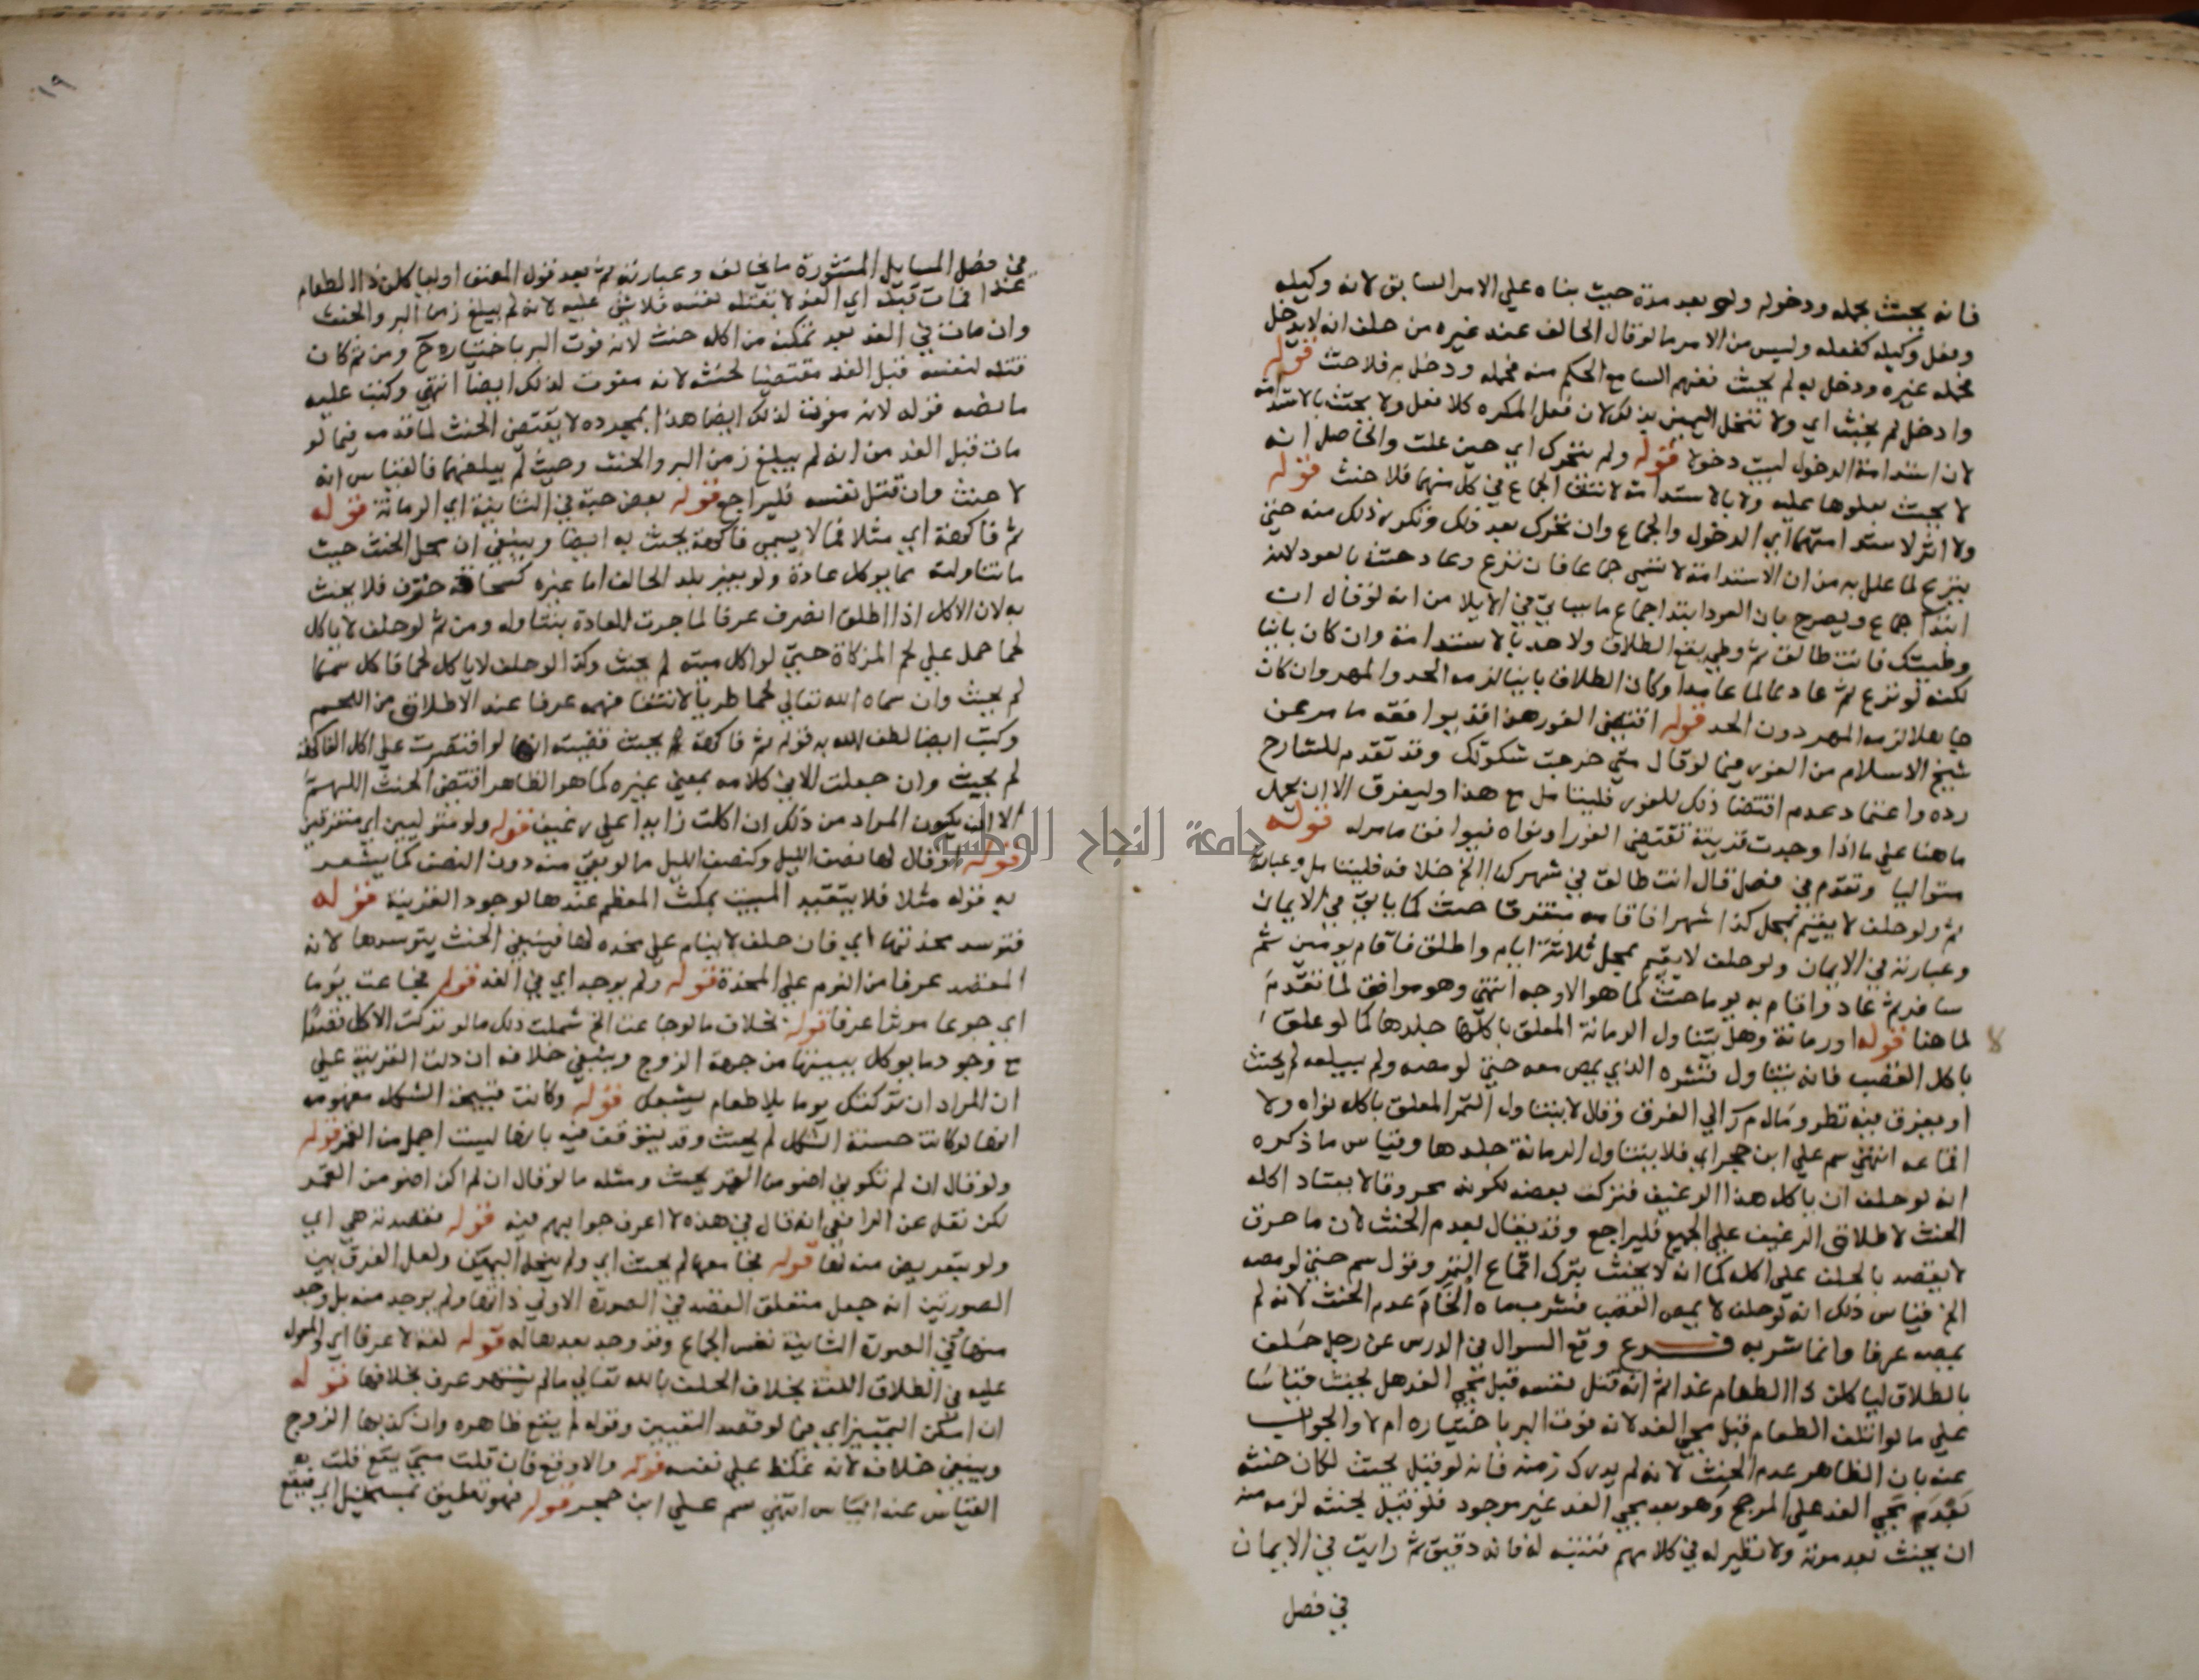 فانه يحنث بحمله ودخوله ولو بعد مدة حيث بناه علي الامر السابق لانه وكيله
وفعل وكيله كفعله وليس من الامر ما لو قال الحالف عند غيره من حلف انه لا يدخل
فحمله غيره ودخل به لم يحنث ففهم السامع الحكم منه فحمله ودخل به فلا حنث قوله
وادخل لم يحنث اي ولا تنحل اليمين بذلك لان فعل المكره كلا فعل ولا يحنث بالاستدامة
لان استدامة الدخول ليست دخولا قوله ولم يتحرك اي حين علت والحاصل انه
لا يحنث بعلوها عليه ولا بالاستدامة لانتفا الجماع في كل منهما فلا حنث قوله
ولا اثر لاستدامتهما اي الدخول والجماع وان تحرك بعد ذلك وتكرر ذلك منه حتي
ينزع لما علل به من ان الاستدامة لا تسمي جماعا فان نزع وعاد حنث بالعود لانه
ابتدا جماع ويصرح بان العود ابتدا جماع ما سياتي في الايلا من انه لو قال ان
وطيتك فانت طالق ثم وطي يقع الطلاق ولا حد بالاستدامة وان كان باينا
لكنه لو نزع ثم عاد عالما عامدا وكان الطلاق باينا لزمه الحد والمهر وان كان
جاهلا لزمه المهر دون الحد قوله اقتضي الفور هو اقد يوافقه ما مر عن
شيخ الاسلام من الفور فيما لو قال متي خرجت شكوتك وقد تقدم للشارح
رده واعتماد عدم اقتضا ذلك للفور فليتامل مع هذا وليفرق الا ان يحمل
ما هنا علي ما اذا وجدت قرينة تقتضي الفور او نواه فيوافق ما مر له قوله
متواليا وتقدم في فصل قال انت طالق في شهر كذا الخ خلافه فليتامل وعبارة
ثم ولو حلف لا يقيم بمحل كذا شهرا فاقامه متفرقا حنث كما ياتي في الايمان
وعبارته في الايمان ولو حلف لا يقيم بمحل ثلاثة ايام واطلق فاقام يومين ثم
سافر ثم عاد واقام به يوما حنث كما هو الاوجه انتهي وهو موافق لما تقدم
لما هنا قوله او رمانة وهل يتناول الرمانة المعلق باكلها جلدها كما لو علق
باكل القصب فانه يتناول قشره الذي يمص معه حتي لو مصه ولم يبلعه لم يحنث
او يفرق فيه نظر ومال م ر الي الفرق وقال لا يتناول التمر المعلق باكله نواه ولا
اقماعه انتهي سم علي ابن حجر اي فلا يتناول الرمانة جلدها وقياس ما ذكره
انه لو حلف ان ياكل هذا الرغيف فترك بعضه لكونه محروقا لا يعتاد اكله
الحنث لاطلاق الرغيف علي الجميع فليراجع وقد يقال بعدم الحنث لان ما حرق
لا يقصد بالحلف علي اكله كما انه لا يحنث بترك اقماع التمر وقول سم حتي لو مصه
الخ قياس ذلك انه لو حلف لا يمص القصب فشرب ماه الخام عدم الحنث لانه لم
يمصه عرفا وانما شربه فرع وقع السوال في الدرس عن رجل حلف
بالطلاق لياكلن ذا الطعام غدا ثم انه قتل نفسه قبل مجي الغد هل يحنث قياسا
علي ما لو اتلف الطعام قبل مجي الغد لانه فوت البر باختياره ام لا والجواب
عنه بان الظاهر عدم الحنث لانه لم يدرك زمنه فانه لو قيل بحنث لكان حنثه
بعد مجي الغد علي المرجح وهو بعد مجي الغد غير موجود فلو قيل بحنثه لزم منه
ان يحنث بعد موته ولا نظير له في كلامهم فتنبه له فانه دقيق ثم رايت في الايمان
في فصل
١٩
في فصل المسايل المنثورة ما يخالفه وعبارته ثم بعد قول المصنف اولياكلن ذا الطعام
غدا فمات قبله اي الغد لا بقتله نفسه فلا شي عليه لانه لم يبلغ زمن البر والحنث
وان مات في الغد بعد تمكنه من اكله حنث لانه فوت البر باختياره ح ومن ثم كان
قتله لنفسه قبل الغد مقتضيا لحنثه لانه مفوت لذلك ايضا انتهي وكتب عليه
ما نصه قوله لانه مفوت لذلك ايضا هذا بمجرده لا يقتضي الحنث لما قدمه فيما لو
مات قبل الغد من انه لم يبلغ زمن البر والحنث وحيث لم يبلغهما فالقياس انه
لا حنث وان قتل نفسه فليراجع قوله بعض حبة في الثانية اي الرمانة قوله
ثم فاكهة اي مثلا مما لا يسمي فاكهة يحنث به ايضا وينبغي ان محل الحنث حيث
ما تناولته مما يوكل عادة ولو بغير بلد الحالف اما غيره كسحاقة خزف فلا يحنث
به لان الاكل اذا اطلق انصرف عرفا لما جرت العادة بتناوله ومن ثم لو حلف لا ياكل
لحما حمل علي لحم المزكاة حتي لو اكل ميتة لم يحنث وكذا لو حلف لا ياكل لحما فاكل سمكا
لم يحنث وان سماه الله تعالي لحما طريا لانتفا فهمه عرفا عند الاطلاق من اللحم
وكتب ايضا لطف الله به قوله ثم فاكهة لم يحنث قضيته انها لو اقتصرت علي اكل الفاكهة
لم يحنث وان جعلت الا في كلامه بمعني غيره كما هو الظاهر اقتضي الحنث اللهم
الا ان يكون المراد من ذلك ان اكلت زايدا علي رغيف قوله ولو متواليين اي متفرقين
قوله لو قال لها نصف الليل وكنصف الليل ما لو بقي منه دون النصف كما يشعر
به قوله مثلا فلا يتقيد المبيت بمكث المعظم عندها لوجود القرينة قوله
فتوسد مخدتها اي فان حلف لا ينام علي مخده لها فينبغي الحنث بتوسدها لانه
المقصد عرفا من النوم علي المخدة قوله ولم يوجد اي في الغد قوله فجاعت يوما
اي جوعا موثرا عرفا قوله بخلاف ما لو جاعت الخ شملت ذلك ما لو تركت الاكل قصدا
مع وجود ما يوكل ببيتها من جهة الزوج وينبغي خلافه ان دلت القرينة علي
ان المراد ان تركتك يوما بلا طعام يشبعك قوله وكانت قبيحة الشكل مفهومه
انها لو كانت حسنة الشكل لم يحنث وقد يتوقف فيه بانها ليست اجمل من القمر قوله
ولو قال ان لم تكوني اضو من القمر يحنث ومثله ما لو قال ان لم اكن اضو من القمر
لكن نقل عن الرافعي انه قال في هذه لا اعرف جوابهم فيه قوله فقصدته هي اي
ولو بتعريض منه لها قوله فجامعها لم يحنث اي ولم ينحل اليمين ولعل الفرق بين
الصورتين انه جعل متعلق القصد في الصورة الاولي ذاتها ولم يوجد منه بل وجد
منها وفي الصورة الثانية نفس الجماع وقد وجد بعدها له قوله لغة لا عرفا اي والمعول
عليه في الطلاق اللغة بخلاف الحلف بالله تعالي ما لم يشتهر عرف بخلافها قوله
ان امكن التمييز اي فيما لو قصد التعيين وقوله لم يقع ظاهره وان كذبها الزوج
وينبغي خلافه لانه غلظ علي نفسه قوله والا وقع فان قلت متي يقع قلت به
القياس عند الياس انتهي سم علي ابن حجر قوله فهو تعليق بمستحيل اي فيقع